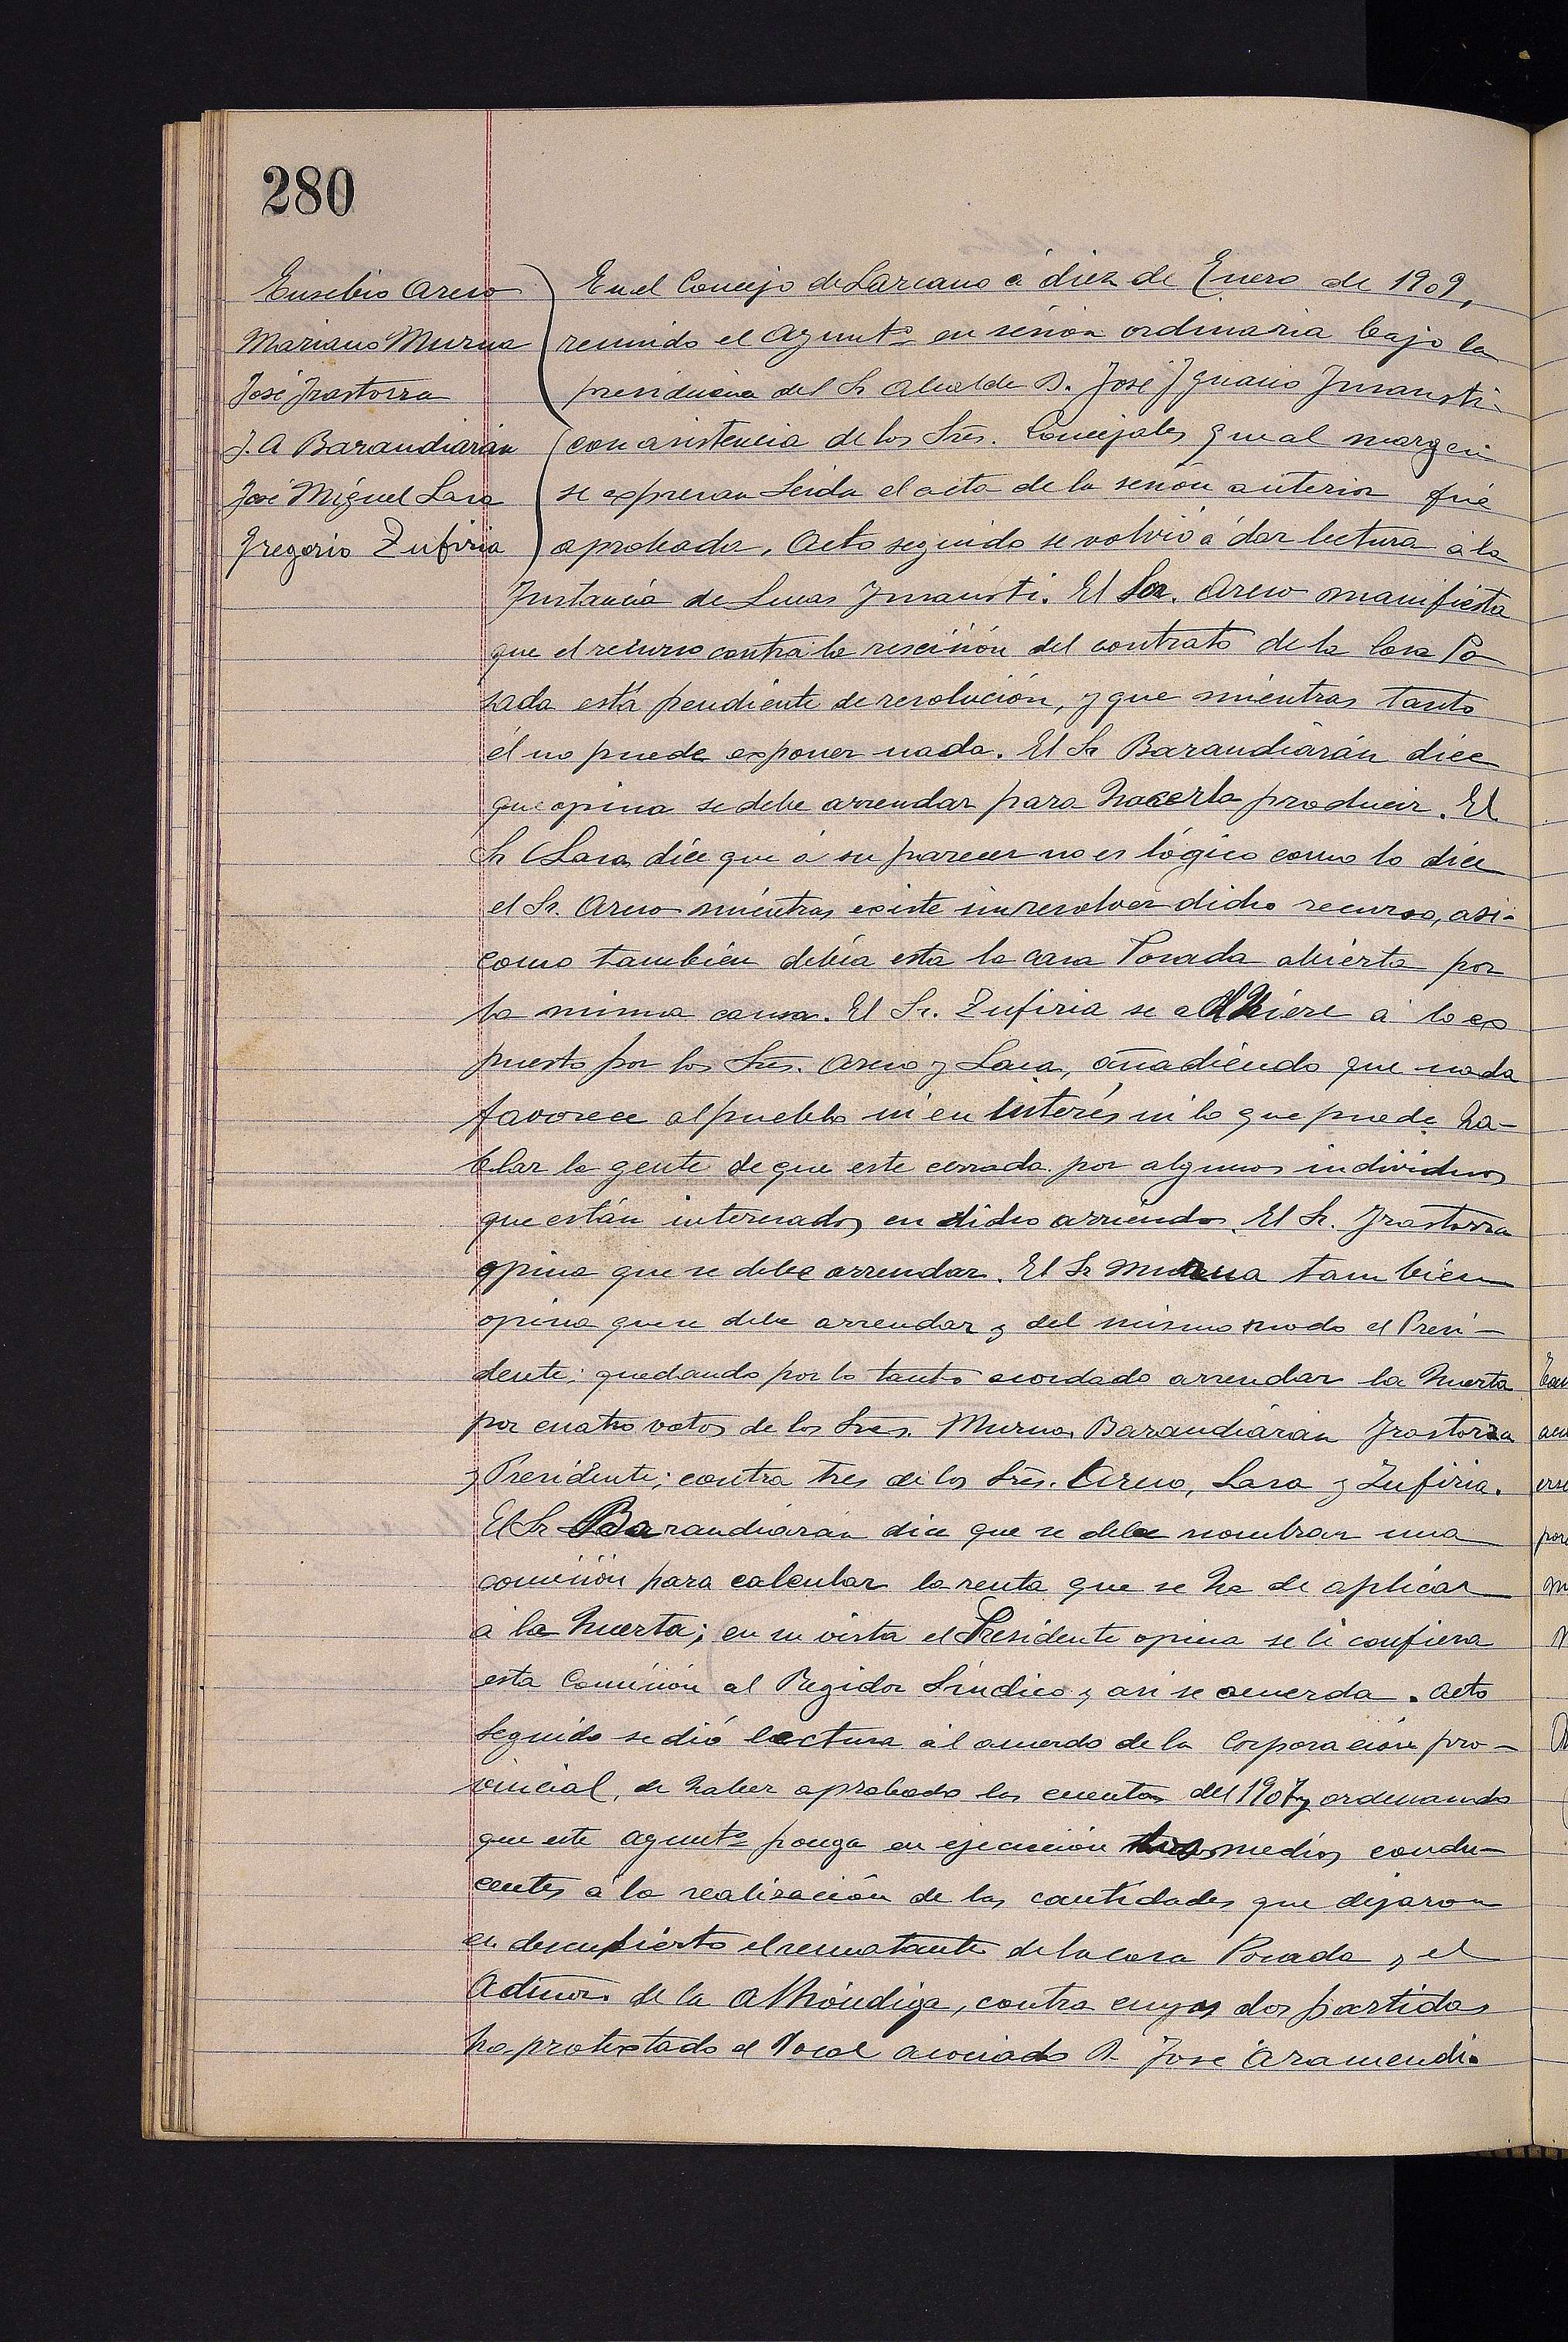 280
Eusebio Areso
Mariano Murua
José Irastorza
J. A Barandiarán
José Miguel Lasa
Gregorio Zufiria
En el Concejo de Lazcano á diez de Enero de 1909,
reunido el Ayuntº en sesión ordinaria bajo la
presidencia del Sr Alcalde D. José Ignacio Imausti
con asistencia de los Sres. Concejales que al margen
se expresan Leida el acta de la sesión anterior fué
aprobada. Acto seguido se volvió á dar lectura á la
Instancia de Lucas Imausti. El Sor. Areso manifiesta
que el recurso contra la rescisión del contrato de la Casa Po
sada está pendiente de resolución, y que mientras tanto
él no puede exponer nada. El Sr Barandiarán dice
que opina se debe arrendar para hacerla producir. El
Sr Lasa dice que á su parecer no es lógico como lo dice
el Sr. Areso mientras existe sin resolver dicho recurso, asi-
como también debía esta la casa Posada abierta por
la misma causa. El Sr. Zufiria se adhiere á lo ex
puesto por los Sres. Areso y Lasa, añadiendo que nada
favorece al pueblo ni en interés ni lo que puede ha-
blar la gente de que este cerrada por algunos individuos
que están interesados en dicho arriendo. El Sr. Irastorza
opina que se debe arrendar. El Sr Murua tambien
opina que se debe arrendar y del mismo modo el Presi-
dente; quedando por lo tanto acordado arrendar la huerta
por cuatro votos de los Sres. Murua, Barandiarán Irastorza
y Presidente; contra tres de los Sres. Areso, Lasa y Zufiria.
El Sr Barandiarán dice que se debe nombrar una
comisión para calcular la renta que se ha de aplicar
á la huerta; en su vista el Presidente opina se le confiera
esta Comisión al Regidor Síndico y asi se acuerda. Acto
seguido se dió lectura al acuerdo de la Corporación pro-
vincial, de haber aprobado las cuentas del 1907 y ordenando
que este Ayuntº ponga en ejecución los medios condu-
centes á la realización de las cantidades que dejaron
en descubierto el rematante de la casa Posada y el
Admor. de la Alhóndiga, contra cuyas dos partidas
ha protextado el Vocal asociado D. José Aramendi.